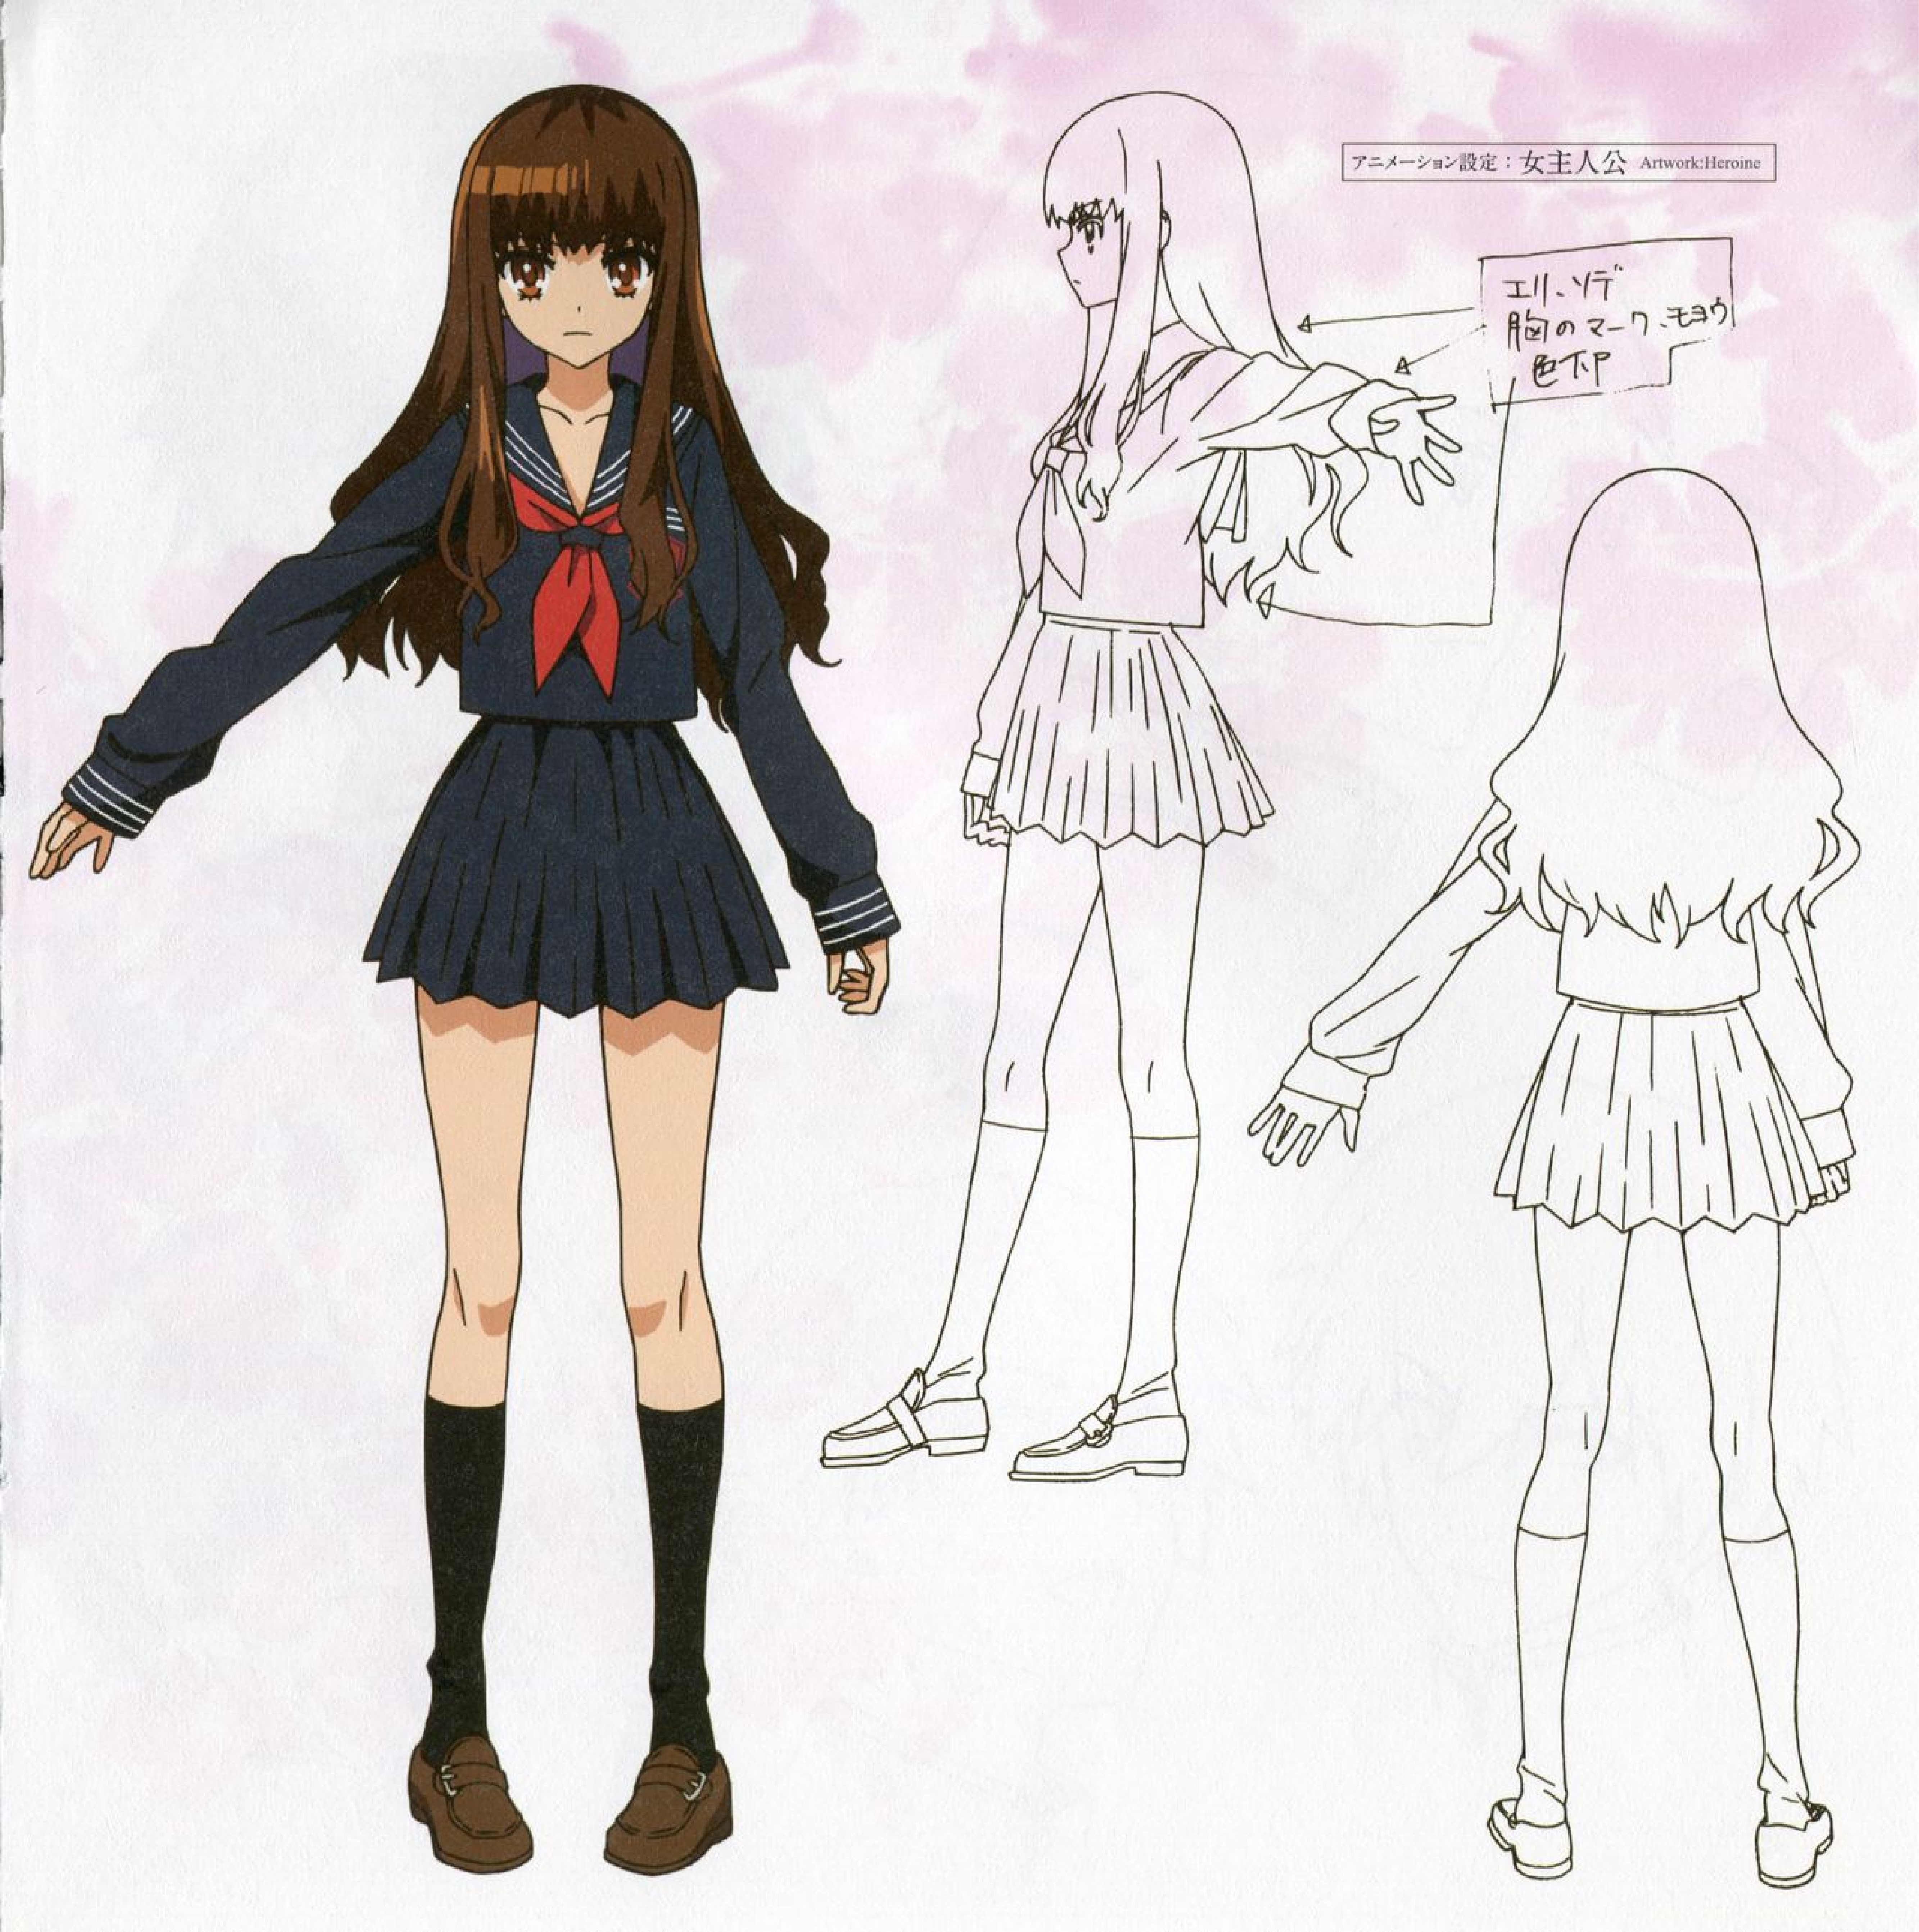 アニメーション設定：女主人公 Artwork:Heroine
エリ、ソデ
胸のマーク、モヨウ
色下P